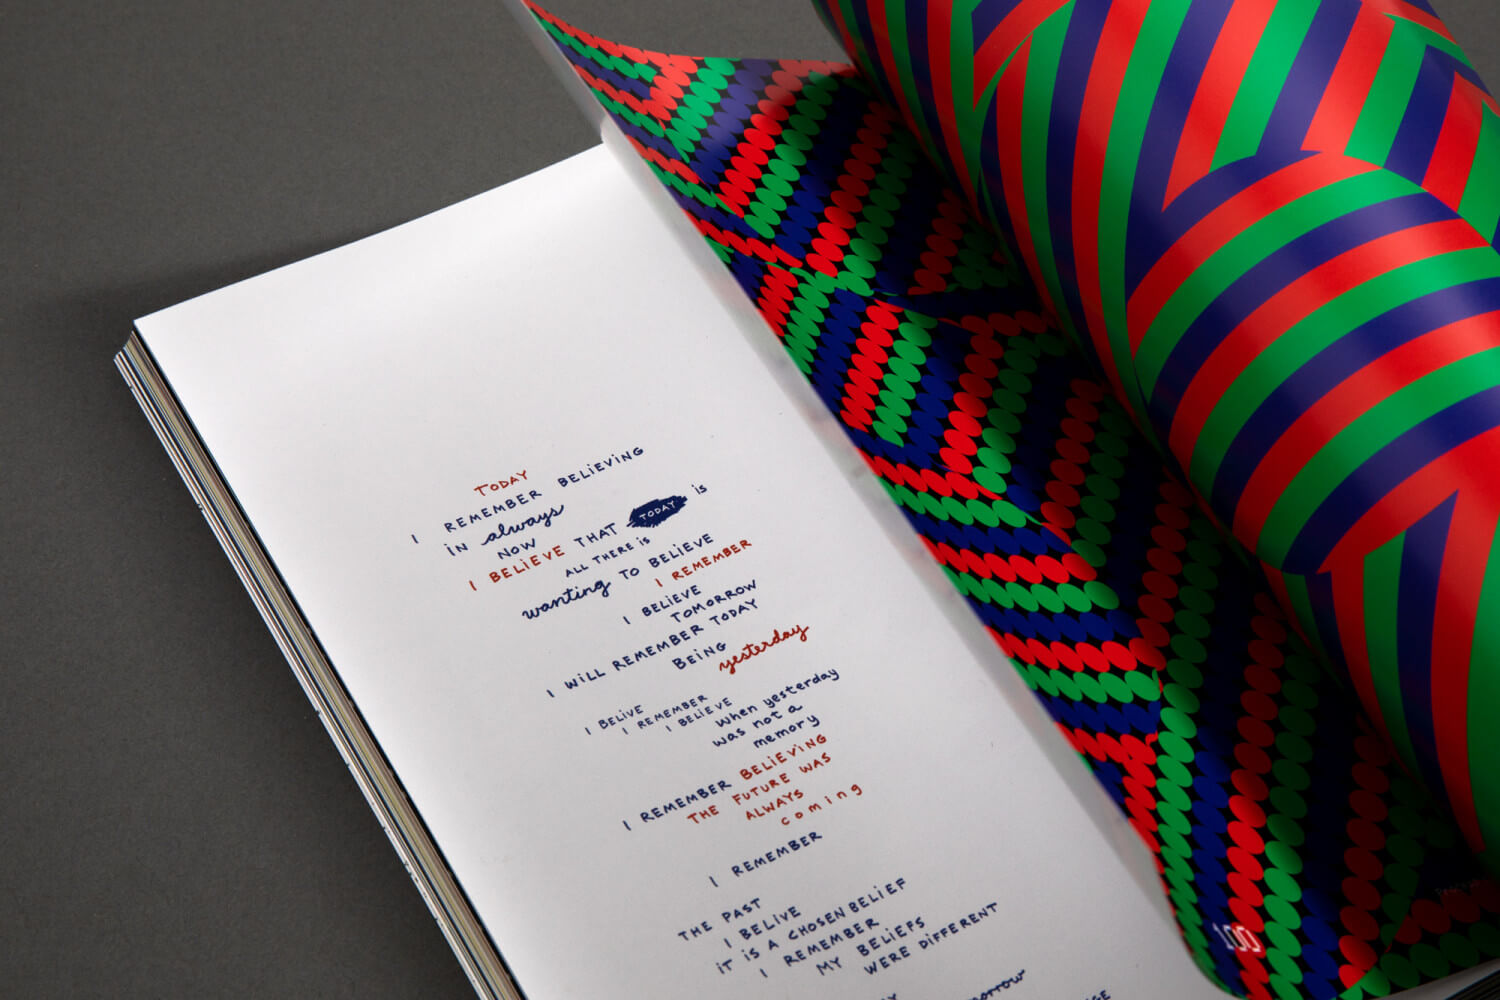 TODAY
I REMEMBER BELiEViNG
iN always
NOW
I BELiEVE THAT TODAY is
ALL THERE is
wanting TO BELiEVE
I REMEMBER
I BELiEVE
TOMORROW
I WiLL REMEMBER TODAY
BEiNG
yesterday
I BELIVE
I REMEMBER
I BELiEVE
when yesterday
was not a
memory
I REMEMBER BELiEViNG
THE FUTURE WAS
ALWAYS
coming
I REMEMBER
THE PAST
I BELIVE
iT iS A CHOSEN BELiEF
I REMEMBER
MY BELiEFS
WERE DIFFERENT
100